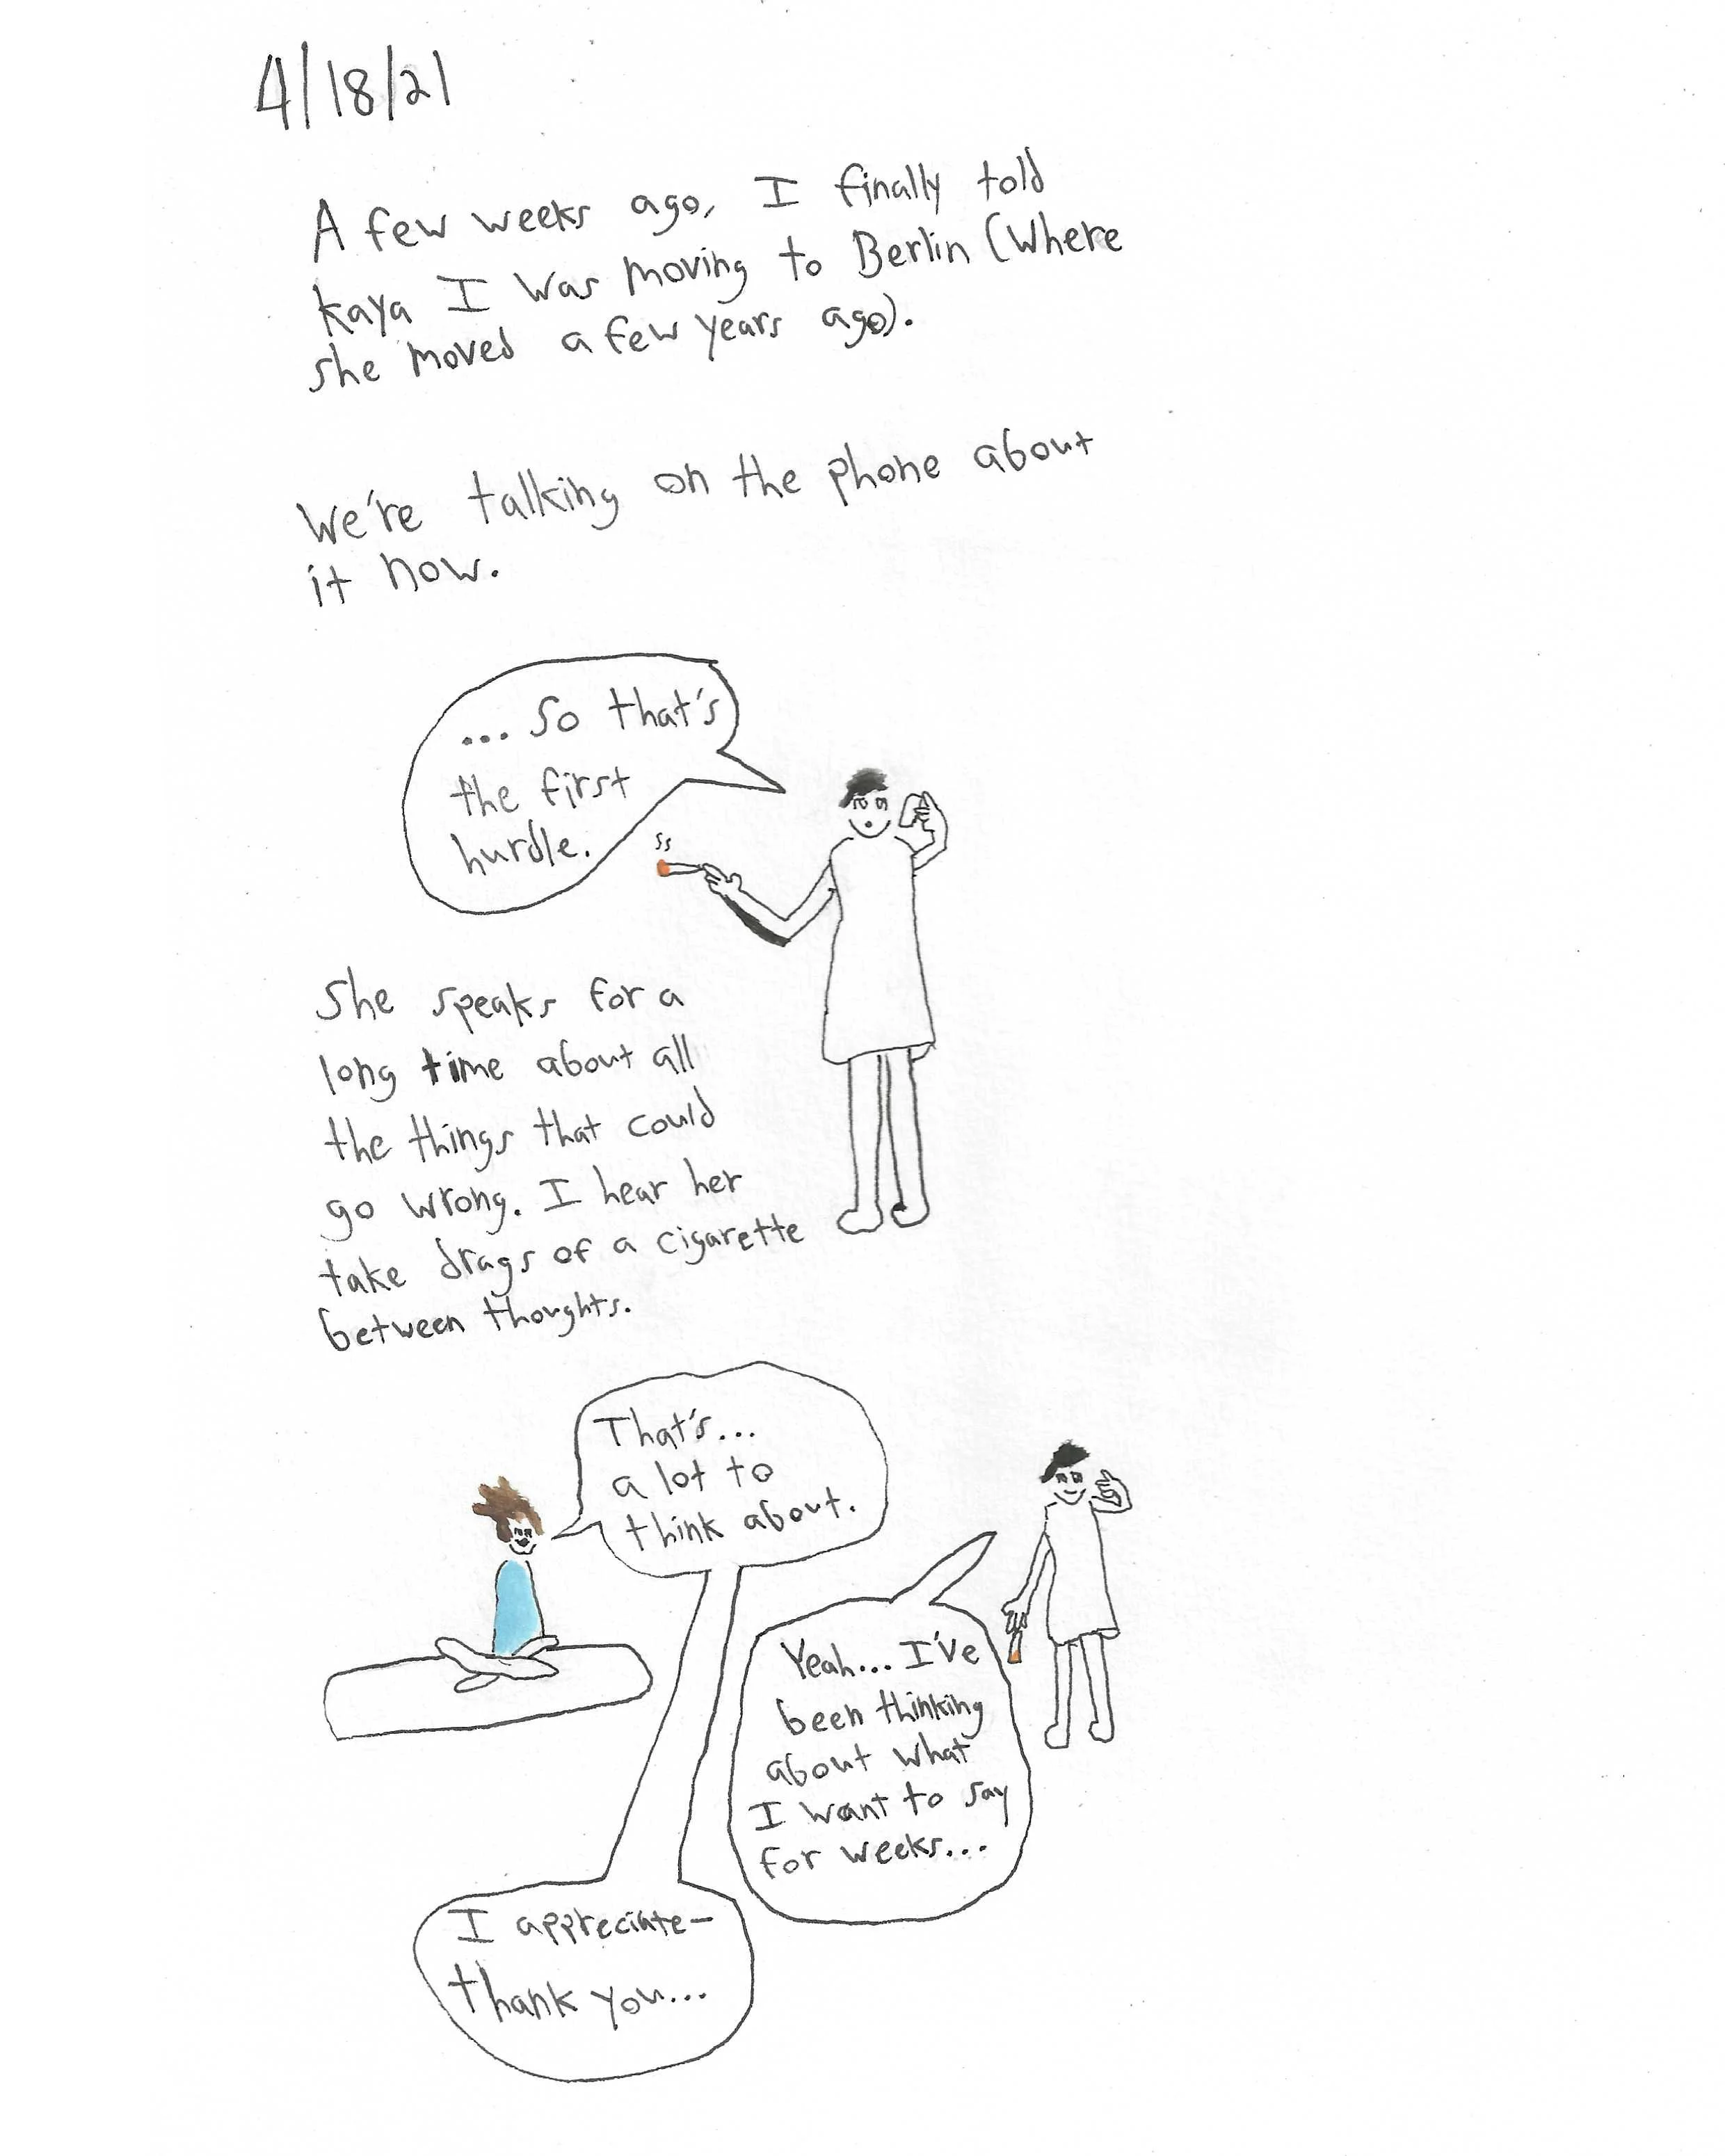 4/18/21
A few weeks ago, I finally told
kaya I was moving to Berlin (Where
she moved a few years ago).
We're talking on the phone about
it now.
... So that's
the first
hurdle.
She speaks for a
long time about all
the things that could
go wrong. I hear her
take drags of a cigarette
between thoughts.
That's...
a lot to
think about.
Yeah... I've
been thinking
about what
I want to say
for weeks...
I appreciate-
thank you...